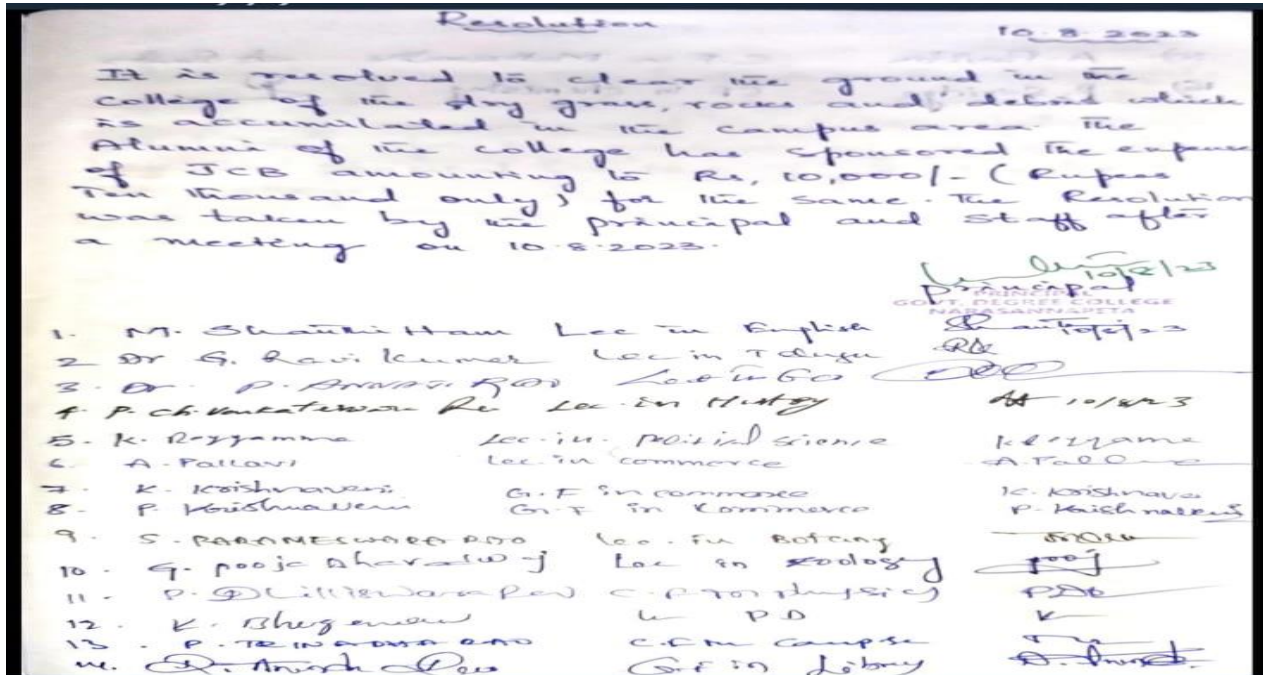 Resolution
10.8.2023
It is resolved to clear the ground in the
college of the dry grass, rocks and debris which
is accumilated in the campus area. The
Alumni of the college has sponsored the expense
of JCB amounting to Rs, 10,000/- (Rupees
Ten thousand only) for the same. The Resolution
was taken by the principal and staff after
a meeting on 10.8.2023.
10/8/23
principal
PRINCIPAL
GOVT. DEGREE COLLEGE
NARASANNAPETA
1. M. Shanthi Lec in English 10/8/23
2 Dr G. Ravi Kumar Lec in Telugu
3. Dr. P. Rao Lect in
4. P. Ch. Venkateswara Lec. in History 10/8/23
5. K. Lec. in. Political science
6. A. Pallavi Lec. in commerce A.
7. K. Krishnaveni G.F in commerce K. Krishnave
8. P. Krishnaveni G.F in Commerce P. Krishnaveni
9. S. PARAMESWARA RAO Lec. in Botany
10. G. pooja Lec in zoology pooj
11. P. Rao physics
12. K. P D K
13. P. TRINADHA RAO
14. G.F in